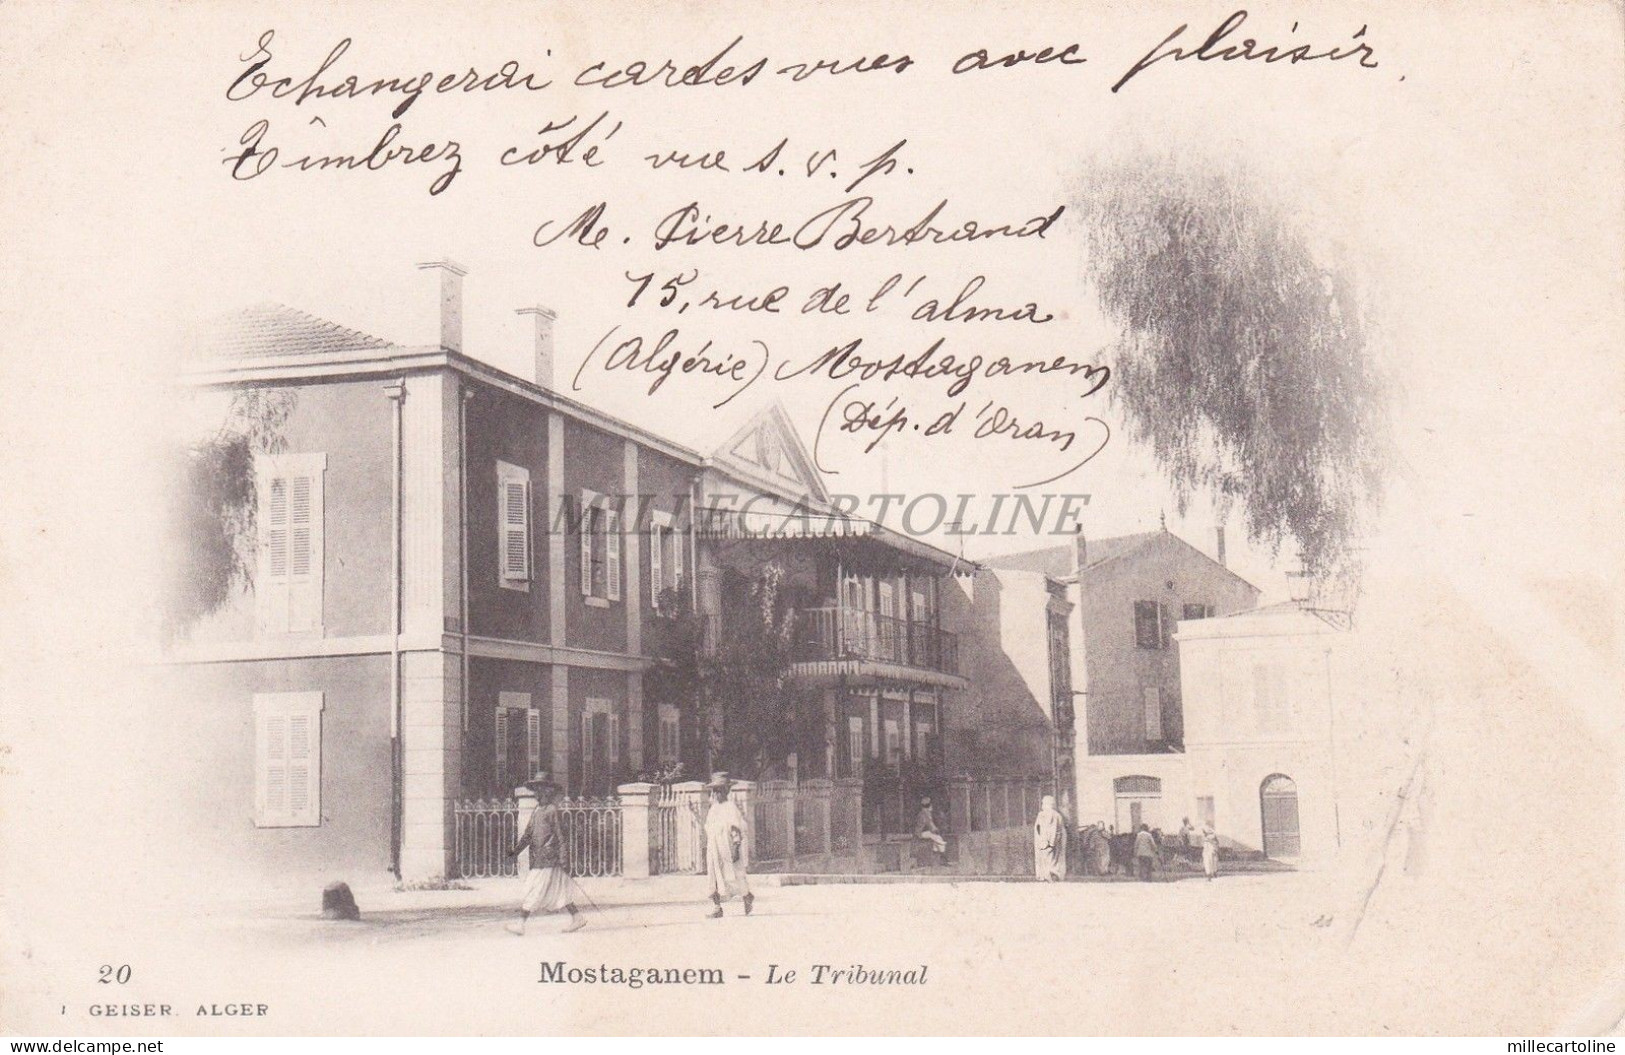 Echangerai cartes vues avec plaisir.
Tîmbrez côté vue s. v. p.
M. Pierre Bertrand
15, rue de l'alma
(Algérie) Mostaganem
(Dép. d'Oran)
MILLECARTOLINE
20
Mostaganem - Le Tribunal
J GEISER. ALGER
www.delcampe.net
millecartoline